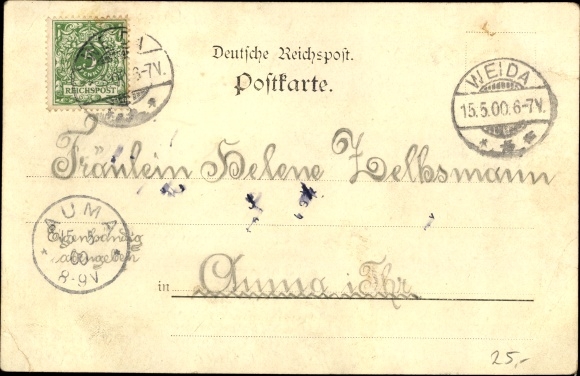 5
REICHSPOST
6-7V.
Deutsche Reichspost.
Postkarte.
WEIDA
15.5.00.6-7V.
Fräulein Helene Zelksmann
AUMA
15 5
00
8-9V
Eigenhändig
abzugeben
in Auma i. Thr.
25,-